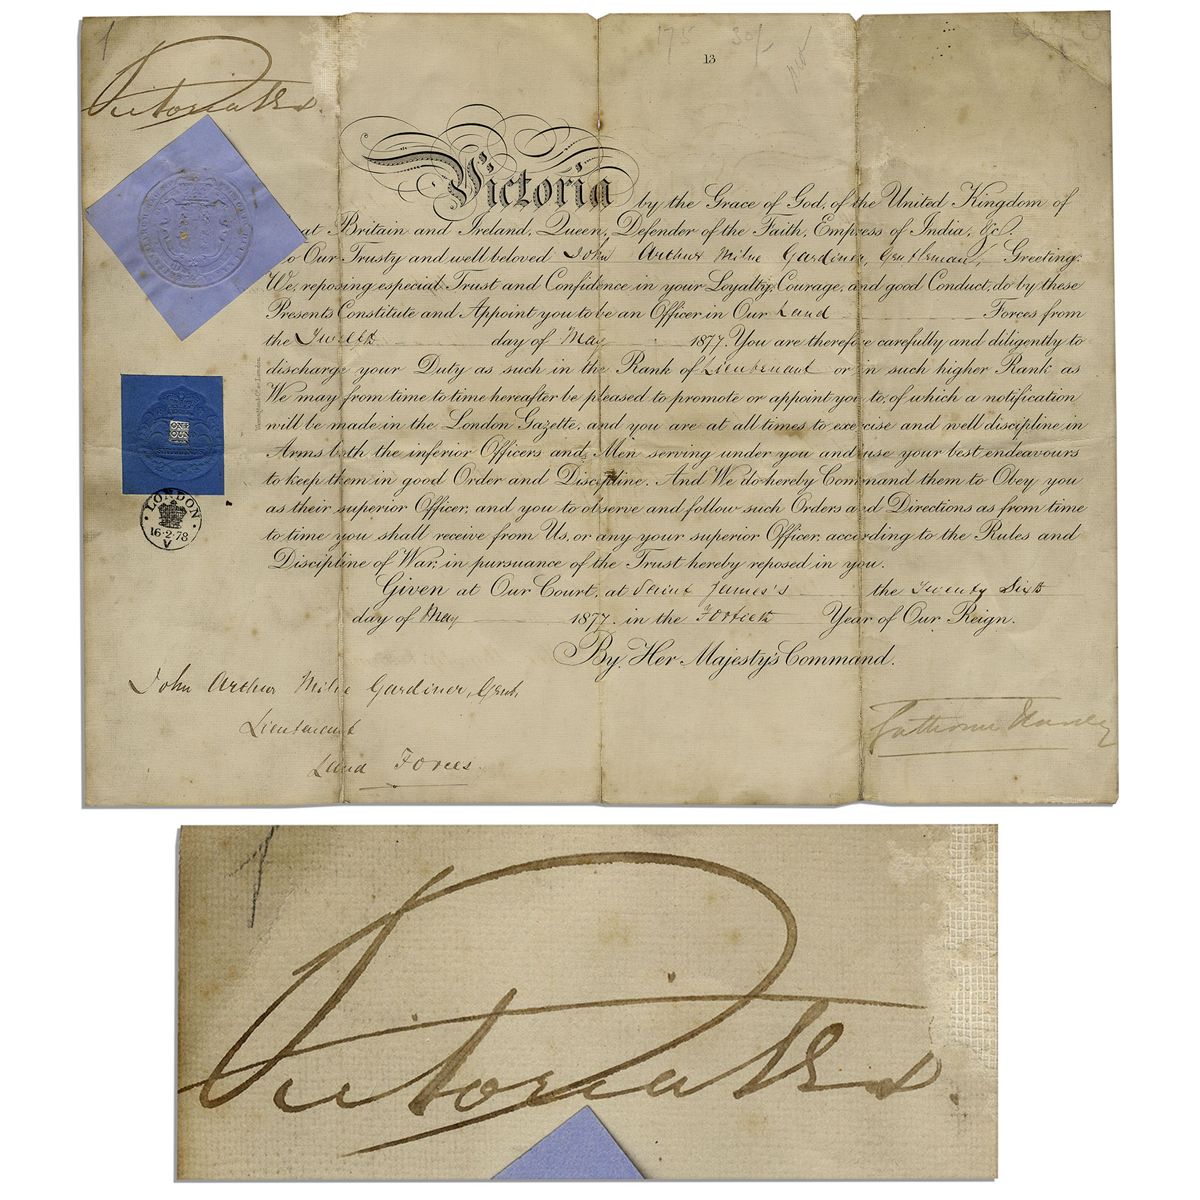 175 30/-
13
Victoria R & I
Victoria by the Grace of God, of the United Kingdom of
at Britain and Ireland, Queen, Defender of the Faith, Empress of India, &c.
o Our Trusty and well beloved John Arthur Milne Gardiner, Gentleman, Greeting.
We, reposing especial Trust and Confidence in your Loyalty, Courage, and good Conduct, do by these
Presents Constitute and Appoint you to be an Officer in Our Land Forces from
the Twelfth day of May 1877. You are therefore carefully and diligently to
discharge your Duty as such in the Rank of Lieutenant or in such higher Rank as
We may from time to time hereafter be pleased to promote or appoint you to, of which a notification
will be made in the London Gazette, and you are at all times to exercise and well discipline in
Arms both the inferior Officers and Men serving under you and use your best endeavours
to keep them in good Order and Discipline. And We do hereby Command them to Obey you
as their superior Officer, and you to observe and follow such Orders and Directions as from time
to time you shall receive from Us, or any your superior Officer, according to the Rules and
Discipline of War, in pursuance of the Trust hereby reposed in you.
Given at Our Court, at Saint James's the Twenty Sixth
day of May 1877. in the Fortieth Year of Our Reign.
By Her Majesty's Command.
LONDON
16·2·78
V
John Arthur Milne Gardiner, Gent,
Lieutenant
Land Forces.
Gathorne Hardy
Victoria R & I